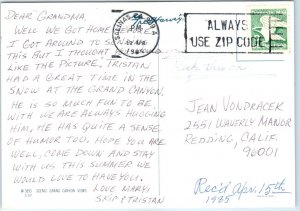 DEAR GRANDMA,
WELL WE GOT HOME
I GOT AROUND TO
THIS BUT I THOUGHT
LIKE THE PICTURE, TRISTAN
HAD A GREAT TIME IN THE
SNOW AT THE GRAND CANYON.
HE IS SO MUCH FUN TO BE
WITH WE ARE ALWAYS HUGGING
HIM, HE HAS QUITE A SENSE
OF HUMOR TOO. HOPE YOU ARE
WELL, COME DOWN AND STAY
WITH US THIS SUMMER WE
WOULD LOVE TO HAVE YOU.
LOVE MARY,
SKIP & TRISTAN
PM
ALWAYS
USE ZIP CODE
JEAN VONDRACEK
2551 WAVERLY MANOR
REDDING, CALIF.
96001
Rec'd Apr. 15th
1985
SCENIC GRAND CANYON VIEWS